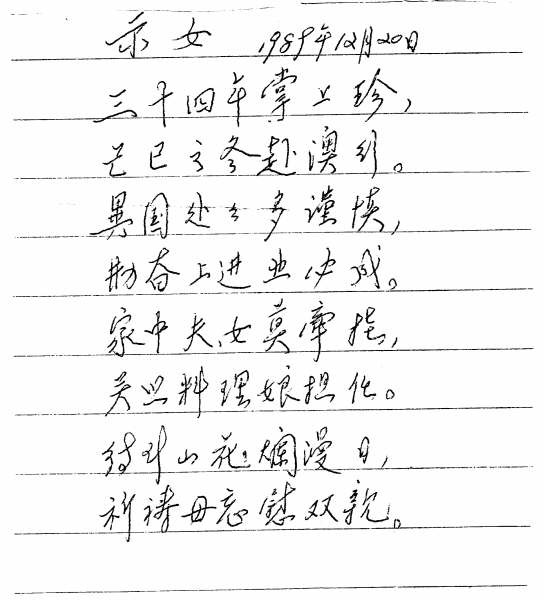 示女 1989年12月20日
三十四年掌上珍,
己巳之冬赴澳行。
異国处々多谨慎,
勤奋上进业必成。
家中夫女莫牵挂,
关照料理娘担任。
待到山花爛漫日,
祈祷毋忘慰双親。